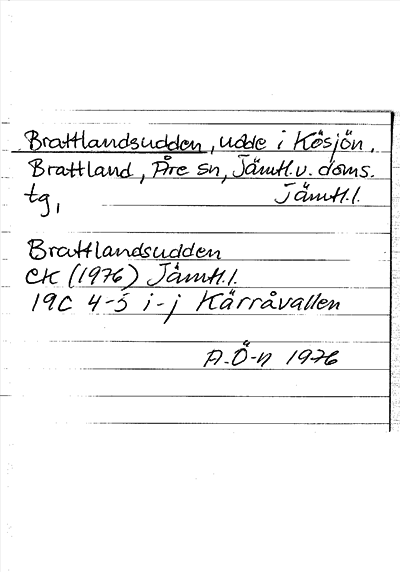 Brattlandsudden, udde i Kösjön.
Brattland, Åre sn, Jämtl.v. doms.
tg, Jämtl.l.
Brattlandsudden
EK (1976) Jämtl.l.
19C 4-5 i-j Kärråvallen
A-Ö-n 1976